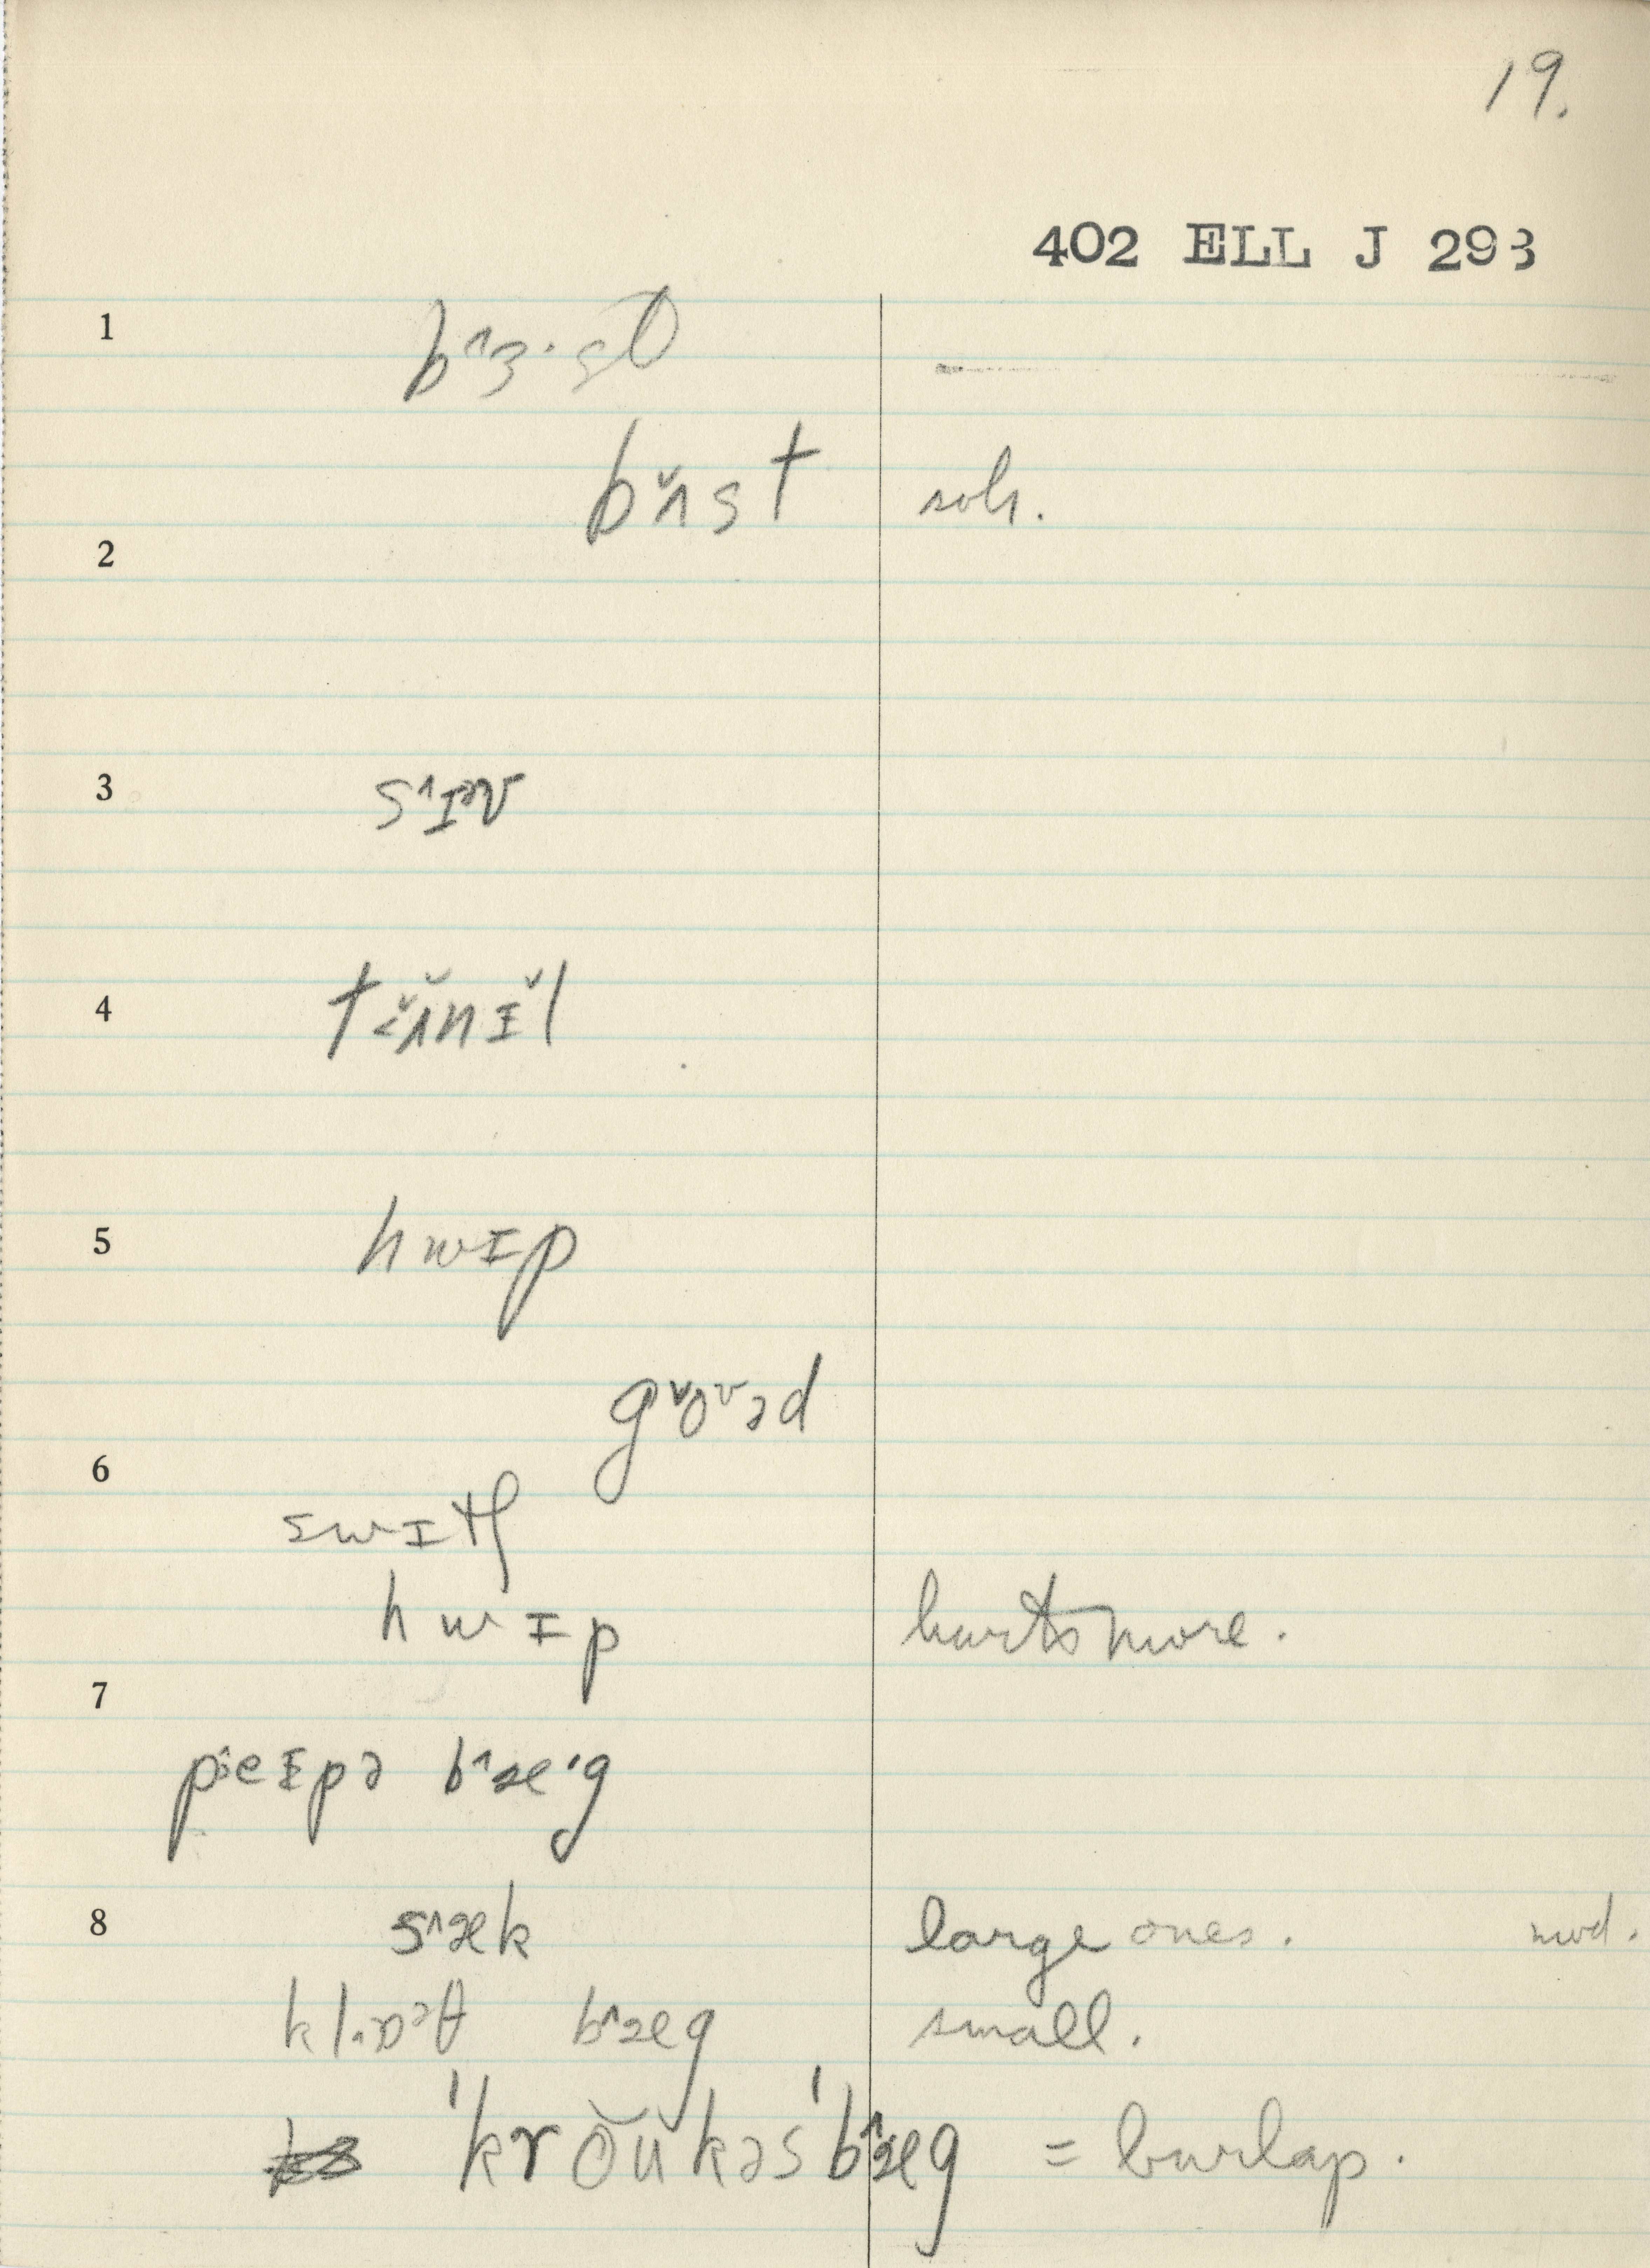 19.
402 ELL J 293
1
bʌst sob.
2
3 s˄ɪəv
4
5 hwɪp
gʊˇəd
6
swɪtʃ
hwɪp hurts more.
7
peɪpə b˄æ·g
8 s˄æk large ones. mod.
b˄æg small.
ˈkrŏŭkəsˈb˄æg = burlap.